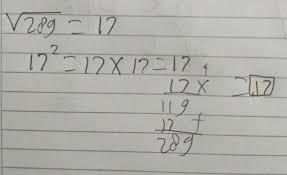 √289 = 17
17² = 17 × 17 = 17
17 × = 17
119
17 +
289